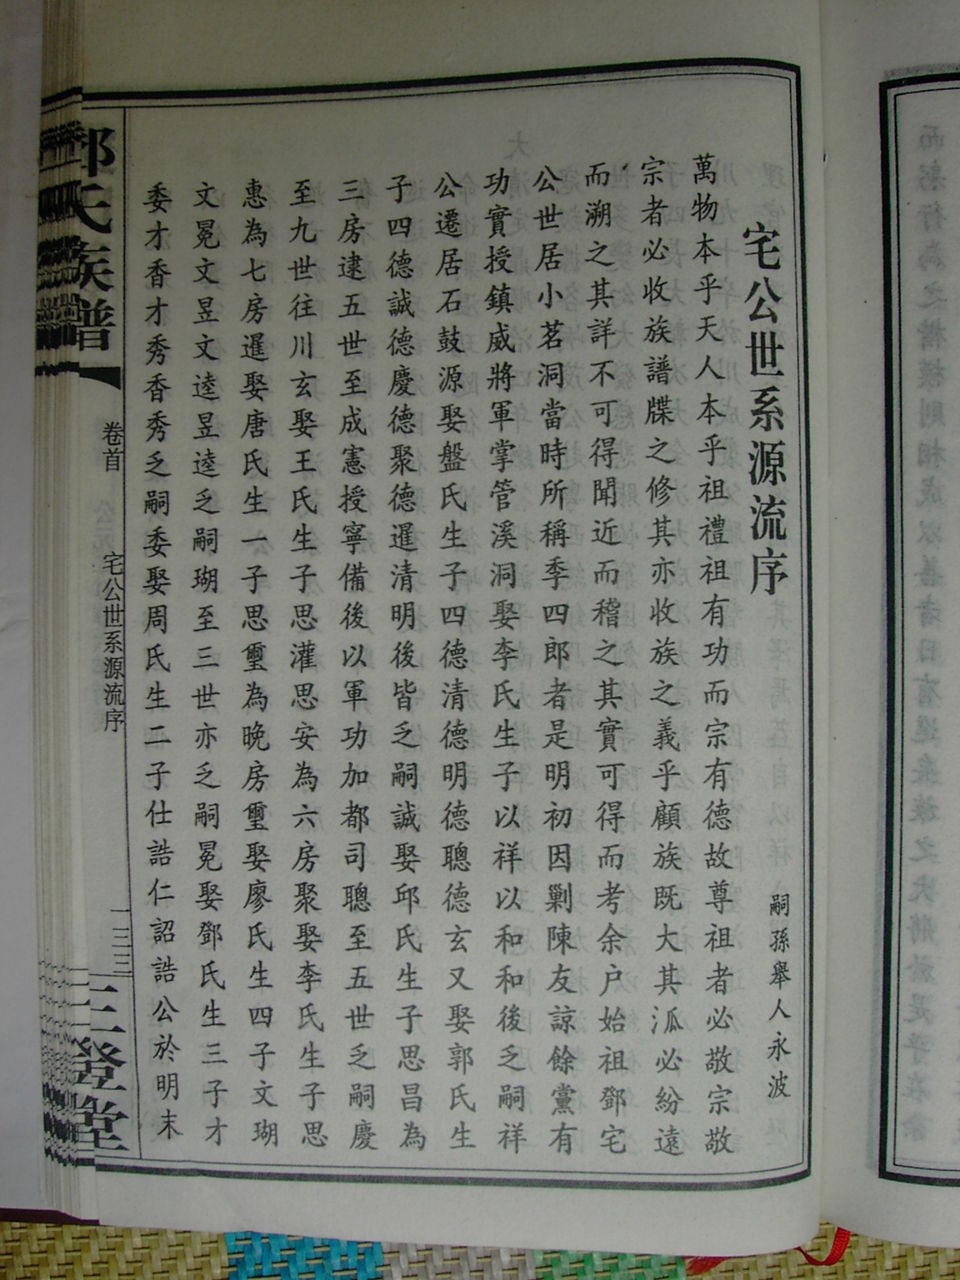 宅公世系源流序
嗣孫舉人永波
萬物本乎天人本乎祖禮祖有功而宗有德故尊祖者必敬宗敬
宗者必收族譜牒之修其亦收族之義乎顧族既大其派必紛遠
而溯之其詳不可得聞近而稽之其實可得而考余户始祖鄧宅
公世居小茗洞當時所稱季四郎者是明初因剿陳友諒餘黨有
功實授鎮威將軍掌管溪洞娶李氏生子以祥以和和後乏嗣祥
公遷居石鼓源娶盤氏生子四德清德明德聰德玄又娶郭氏生
子四德誠德慶德聚德暹清明後皆乏嗣誠娶邱氏生子思昌為
三房逮五世至成憲授寧備後以軍功加都司聰至五世乏嗣慶
至九世往川玄娶王氏生子思灌思安為六房聚娶李氏生子思
惠為七房暹娶唐氏生一子思璽為晚房璽娶廖氏生四子文瑚
文冕文昱文逵昱逵乏嗣瑚至三世亦乏嗣冕娶鄧氏生三子才
委才香才秀香秀乏嗣委娶周氏生二子仕誥仁詔誥公於明末
鄧氏族譜
卷首
宅公世系源流序
一三三
三登堂